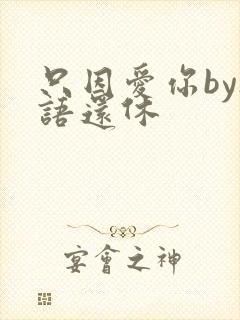 只因爱你by
語還休
宴會之神